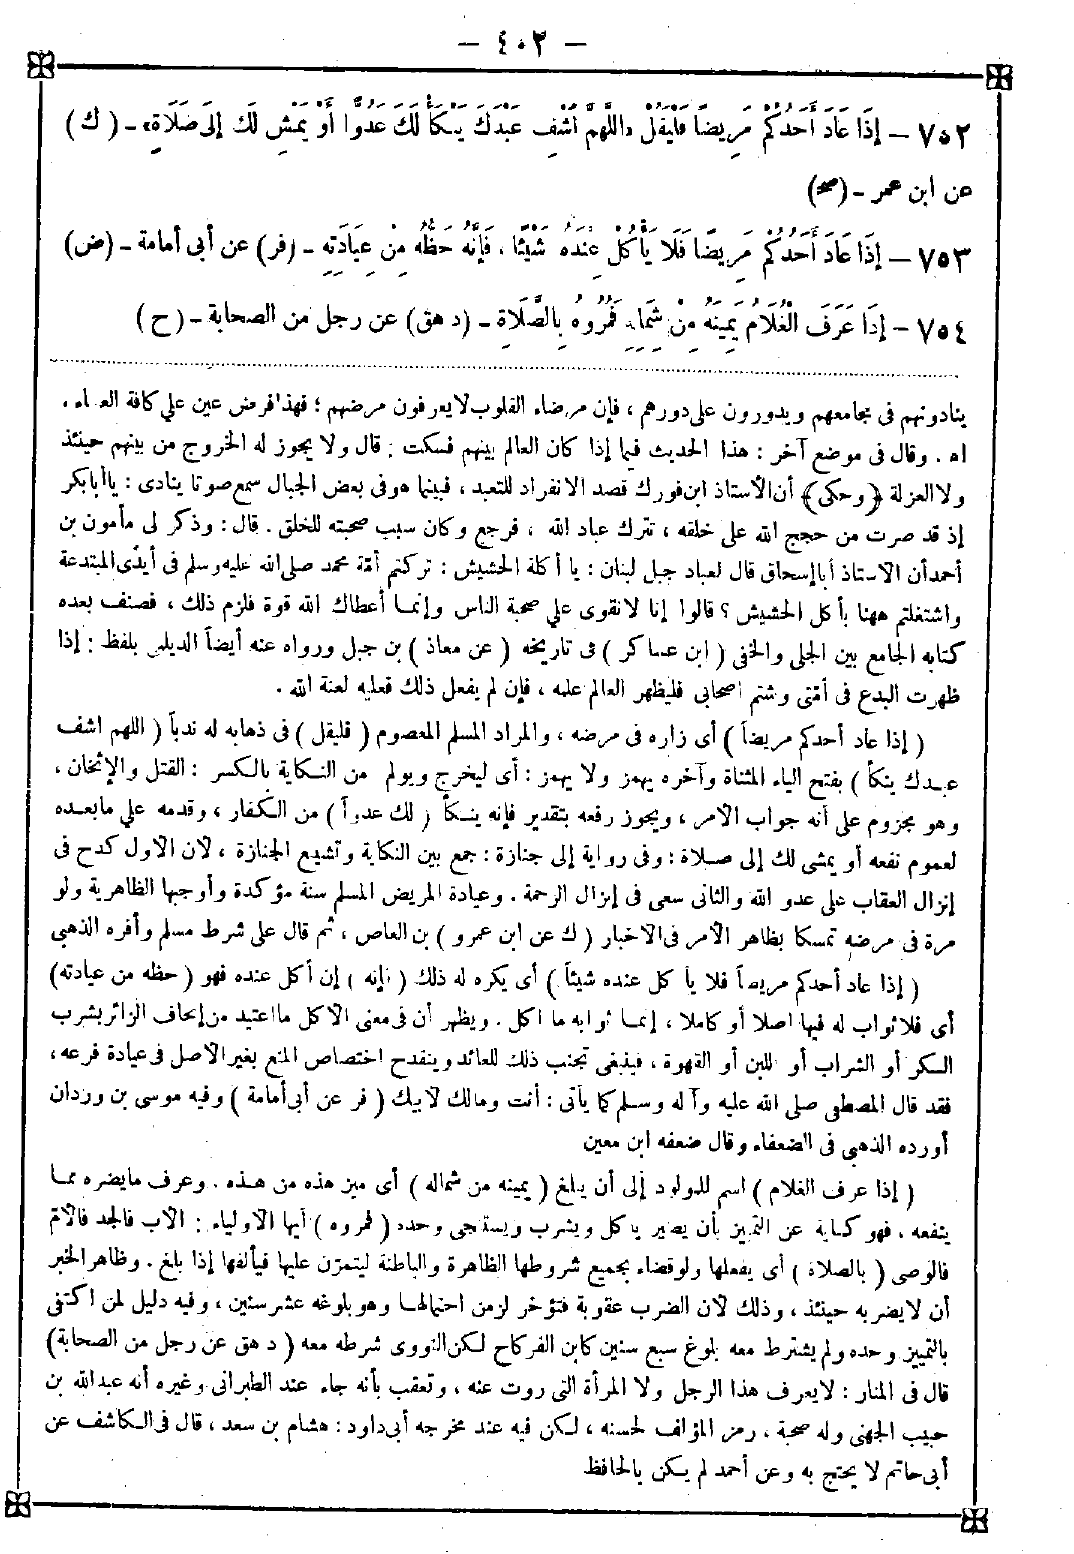 — ٤٠٢ —
٧٥٢ – إِذَا عَادَ أَحَدُكُمْ مَرِيضًا فَلْيَقُلْ «اللَّهُمَّ اشْفِ عَبْدَكَ يَنْكَأُ لَكَ عَدُوًّا أَوْ يَمْشِ لَكَ إِلَى صَلَاةٍ» - (ك)
عن ابن عمر - (صح)
٧٥٣ – إِذَا عَادَ أَحَدُكُمْ مَرِيضًا فَلَا يَأْكُلْ عِنْدَهُ شَيْئًا ، فَإِنَّهُ حَظُّهُ مِنْ عِيَادَتِهِ - (فر) عن أبى أمامة - (ض)
٧٥٤ – إِذَا عَرَفَ الْغُلَامُ يَمِينَهُ مِنْ شِمَالِهِ فَمُرُوهُ بِالصَّلَاةِ - (د هق) عن رجل من الصحابة - (ح)
ينادونهم فى مجامعهم ويدورون على دورهم ، فإن مرضاء القلوب لايعرفون مرضهم ؛ فهذا فرض عين علي كافة العلماء .
اه . وقال فى موضع آخر : هذا الحديث فيما إذا كان العالم بينهم فسكت : قال ولا يجوز له الخروج من بينهم حينئذ
ولا العزلة (وحكى) أن الأستاذ ابن فورك قصد الانفراد للتعبد ، فبينما هو فى بعض الجبال سمع صوتا ينادى : يا أبا بكر
إذ قد صرت من حجج الله على خلقه ، تترك عباد الله ، فرجع وكان سبب صحبته للخلق . قال : وذكر لى مأمون بن
أحمد أن الاستاذ أبا إسحاق قال لعباد جبل لبنان : يا أكلة الحشيش : تركتم أمّة محمد صلى الله عليه وسلم فى أيدى المبتدعة
واشتغلتم ههنا بأكل الحشيش ؟ قالوا إنا لا نقوى علي صحبة الناس وإنما أعطاك الله قوة فلزم ذلك ، فصنف بعده
كتابه الجامع بين الجلى والخفى ( ابن عساكر ) فى تاريخه ( عن معاذ ) بن جبل ورواه عنه أيضاً الديلمى بلفظ : إذا
ظهرت البدع فى أمتى وشتم اصحابى فليظهر العالم علمه ، فإن لم يفعل ذلك فعليه لعنة الله .
( إذا عاد أحدكم مريضاً ) أى زاره فى مرضه ، والمراد المسلم المعصوم ( فليقل ) فى ذهابه له ندباً ( اللهم اشف
عبدك ينكأ ) بفتح الياء المثناة وآخره يهمز ولا يهمز : أى ليخرج ويولم من النكاية بالكسر : القتل والإثخان ،
وهو مجزوم على أنه جواب الامر ، ويجوز رفعه بتقدير فإنه ينكأ ( لك عدواً ) من الكفار ، وقدمه علي مابعده
لعموم نفعه أو يمشى لك إلى صلاة : وفى رواية إلى جنازة : جمع بين النكاية وتشيع الجنازة ، لان الاول كدح فى
إنزال العقاب على عدو الله والثانى سعى فى إنزال الرحمة . وعيادة المريض المسلم سنة مؤكدة وأوجبها الظاهرية ولو
مرة فى مرضه تمسكا بظاهر الأمر فى الاخبار ( ك عن ابن عمرو ) بن العاص ، ثم قال على شرط مسلم وأقره الذهبى
( إذا عاد أحدكم مريضاً فلا يأكل عنده شيئاً ) أى يكره له ذلك ( فإنه ) إن أكل عنده فهو ( حظه من عيادته)
أى فلا ثواب له فيها اصلا أو كاملا ، إنما ثوابه ما اكل . ويظهر أن فى معنى الاكل ما اعتيد من إتحاف الزائر بشرب
السكر أو الشراب أو اللبن أو القهوة ، فينبغى تجنب ذلك للعائد وينقدح اختصاص المنع بغير الاصل فى عيادة فرعه ،
فقد قال المصطفى صلى الله عليه وآله وسلم كما يأتى : أنت ومالك لابيك ( فر عن أبى أمامة ) وفيه موسى بن وردان
أورده الذهبى فى الضعفاء وقال ضعفه ابن معين
( إذا عرف الغلام ) اسم للمولود إلى أن يبلغ ( يمينه من شماله ) أى ميز هذه من هذه . وعرف مايضره مما
ينفعه ، فهو كناية عن التمييز بأن يصير يأكل ويشرب ويستنجى وحده ( فمروه ) أيها الاولياء : الأب فالجد فالأمّ
فالوصى ( بالصلاة ) أى يفعلها ولو قضاء بجميع شروطها الظاهرة والباطنة ليتمرّن عليها فيألفها إذا بلغ . وظاهر الخبر
أن لا يضربه حينئذ ، وذلك لان الضرب عقوبة فتؤخر لزمن احتمالها وهو بلوغه عشر سنين ، وفيه دليل لمن اكتفى
بالتمييز وحده ولم يشترط معه بلوغ سبع سنين كابن الفركاح لكن النووى شرطه معه ( د هق عن رجل من الصحابة)
قال فى المنار : لا يعرف هذا الرجل ولا المرأة التى روت عنه ، وتعقب بأنه جاء عند الطبرانى وغيره أنه عبد الله بن
حبيب الجهنى وله صحبة ، رمز المؤلف لحسنه ، لكن فيه عند مخرجه أبى داود : هشام بن سعد ، قال فى الكاشف عن
أبى حاتم لا يحتج به وعن أحمد لم يكن بالحافظ